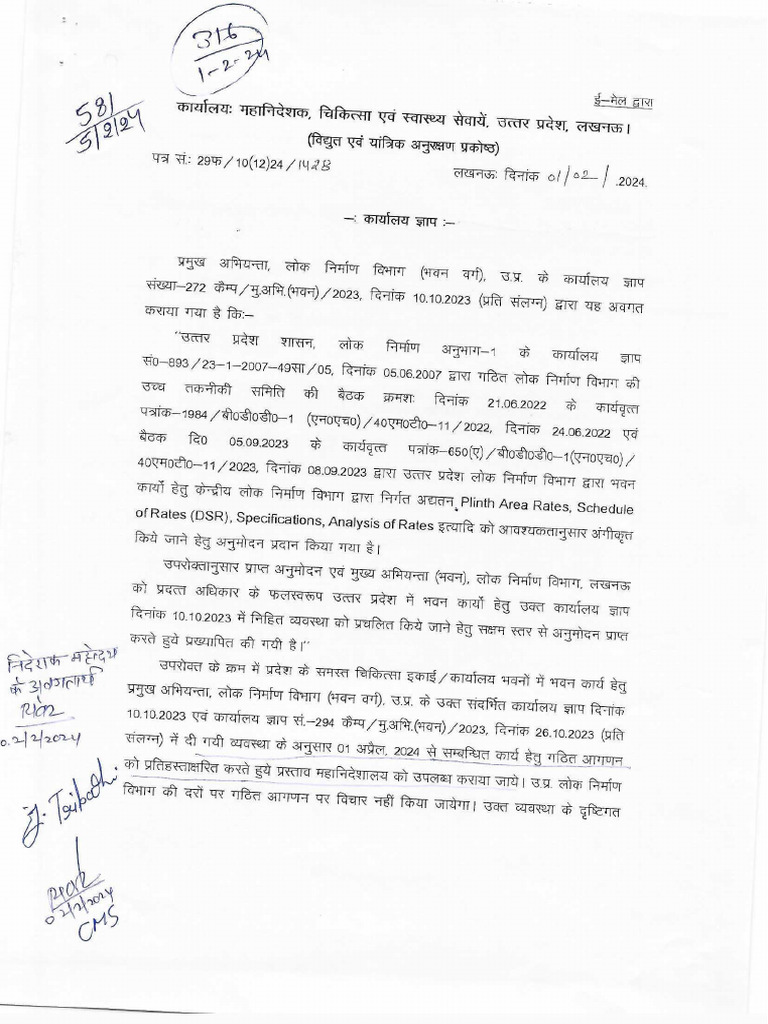 316
1-2-24
581
5/2/24
ई–मेल द्वारा
कार्यालयः महानिदेशक, चिकित्सा एवं स्वास्थ्य सेवायें, उत्तर प्रदेश, लखनऊ।
(विद्युत एवं यांत्रिक अनुरक्षण प्रकोष्ठ)
पत्र सं.: 29फ/10(12)24/1428 लखनऊः दिनांक 01/02/.2024.
–: कार्यालय ज्ञाप :–
प्रमुख अभियन्ता, लोक निर्माण विभाग (भवन वर्ग), उ.प्र. के कार्यालय ज्ञाप
संख्या–272 कैम्प/मु.अभि.(भवन)/2023, दिनांक 10.10.2023 (प्रति संलग्न) द्वारा यह अवगत
कराया गया है कि:–
"उत्तर प्रदेश शासन, लोक निर्माण अनुभाग–1 के कार्यालय ज्ञाप
सं0–893/23–1–2007–49सा/05, दिनांक 05.06.2007 द्वारा गठित लोक निर्माण विभाग की
उच्च तकनीकी समिति की बैठक क्रमशः दिनांक 21.06.2022 के कार्यवृत्त
पत्रांक–1984/बी0डी0डी0–1 (एन0एच0)/40एम0टी0–11/2022, दिनांक 24.06.2022 एवं
बैठक दि0 05.09.2023 के कार्यवृत्त पत्रांक–650(ए)/बी0डी0डी0–1(एन0एच0)/
40एम0टी0–11/2023, दिनांक 08.09.2023 द्वारा उत्तर प्रदेश लोक निर्माण विभाग द्वारा भवन
कार्यो हेतु केन्द्रीय लोक निर्माण विभाग द्वारा निर्गत अद्यतन Plinth Area Rates, Schedule
of Rates (DSR), Specifications, Analysis of Rates इत्यादि को आवश्यकतानुसार अंगीकृत
किये जाने हेतु अनुमोदन प्रदान किया गया है।
उपरोक्तानुसार प्राप्त अनुमोदन एवं मुख्य अभियन्ता (भवन), लोक निर्माण विभाग, लखनऊ
को प्रदत्त अधिकार के फलस्वरूप उत्तर प्रदेश में भवन कार्यो हेतु उक्त कार्यालय ज्ञाप
दिनांक 10.10.2023 में निहित व्यवस्था को प्रचलित किये जाने हेतु सक्षम स्तर से अनुमोदन प्राप्त
करते हुये प्रख्यापित की गयी है।"
उपरोक्त के क्रम में प्रदेश के समस्त चिकित्सा इकाई/कार्यालय भवनों में भवन कार्य हेतु
प्रमुख अभियन्ता, लोक निर्माण विभाग (भवन वर्ग), उ.प्र. के उक्त संदर्भित कार्यालय ज्ञाप दिनांक
10.10.2023 एवं कार्यालय ज्ञाप सं.–294 कैम्प/मु.अभि.(भवन)/2023, दिनांक 26.10.2023 (प्रति
संलग्न) में दी गयी व्यवस्था के अनुसार 01 अप्रैल, 2024 से सम्बन्धित कार्य हेतु गठित आगणन
को प्रतिहस्ताक्षरित करते हुये प्रस्ताव महानिदेशालय को उपलब्ध कराया जाये। उ.प्र. लोक निर्माण
विभाग की दरों पर गठित आगणन पर विचार नहीं किया जायेगा। उक्त व्यवस्था के दृष्टिगत
निदेशक महोदय
के अवगतार्थ
0.2/2/2024
J. Tripathi
02/2/2024
CMS